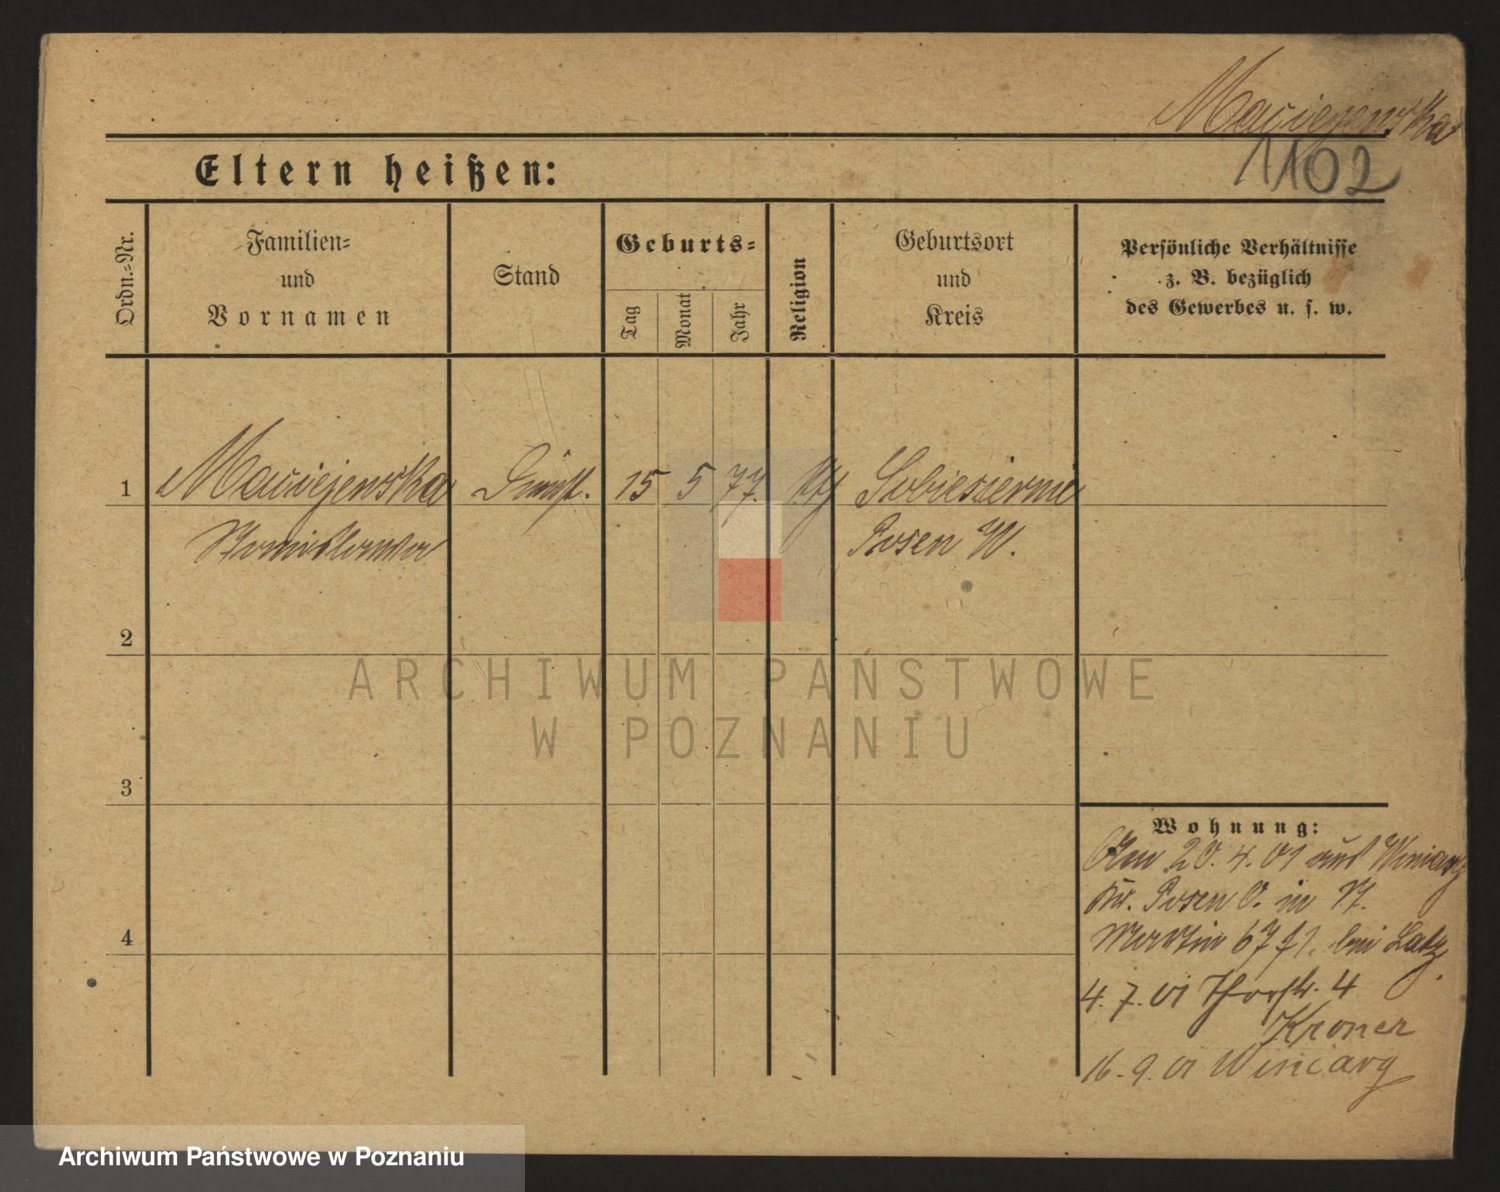 Maciejewska
1102
Eltern heißen:
Ordn.=Nr.
Familien=
und
Vornamen
Stand
Geburts=
Tag
Monat
Jahr
Religion
Geburtsort
und
Kreis
Persönliche Verhältnisse
z. B. bezüglich
des Gewerbes u. s. w.
1
Maciejewska
Stanislawa
Dienst.
15
5
77.
Sobiesiernie
Posen W.
2
3
4
Wohnung:
20. 4. 01 aus Winiary
Kr. Posen O. in St.
Martin 67 bei Latz.
4. 7. 01 Thorstr. 4
Kroner
16. 9. 01 Winiary
ARCHIWUM PAŃSTWOWE
W POZNANIU
Archiwum Państwowe w Poznaniu